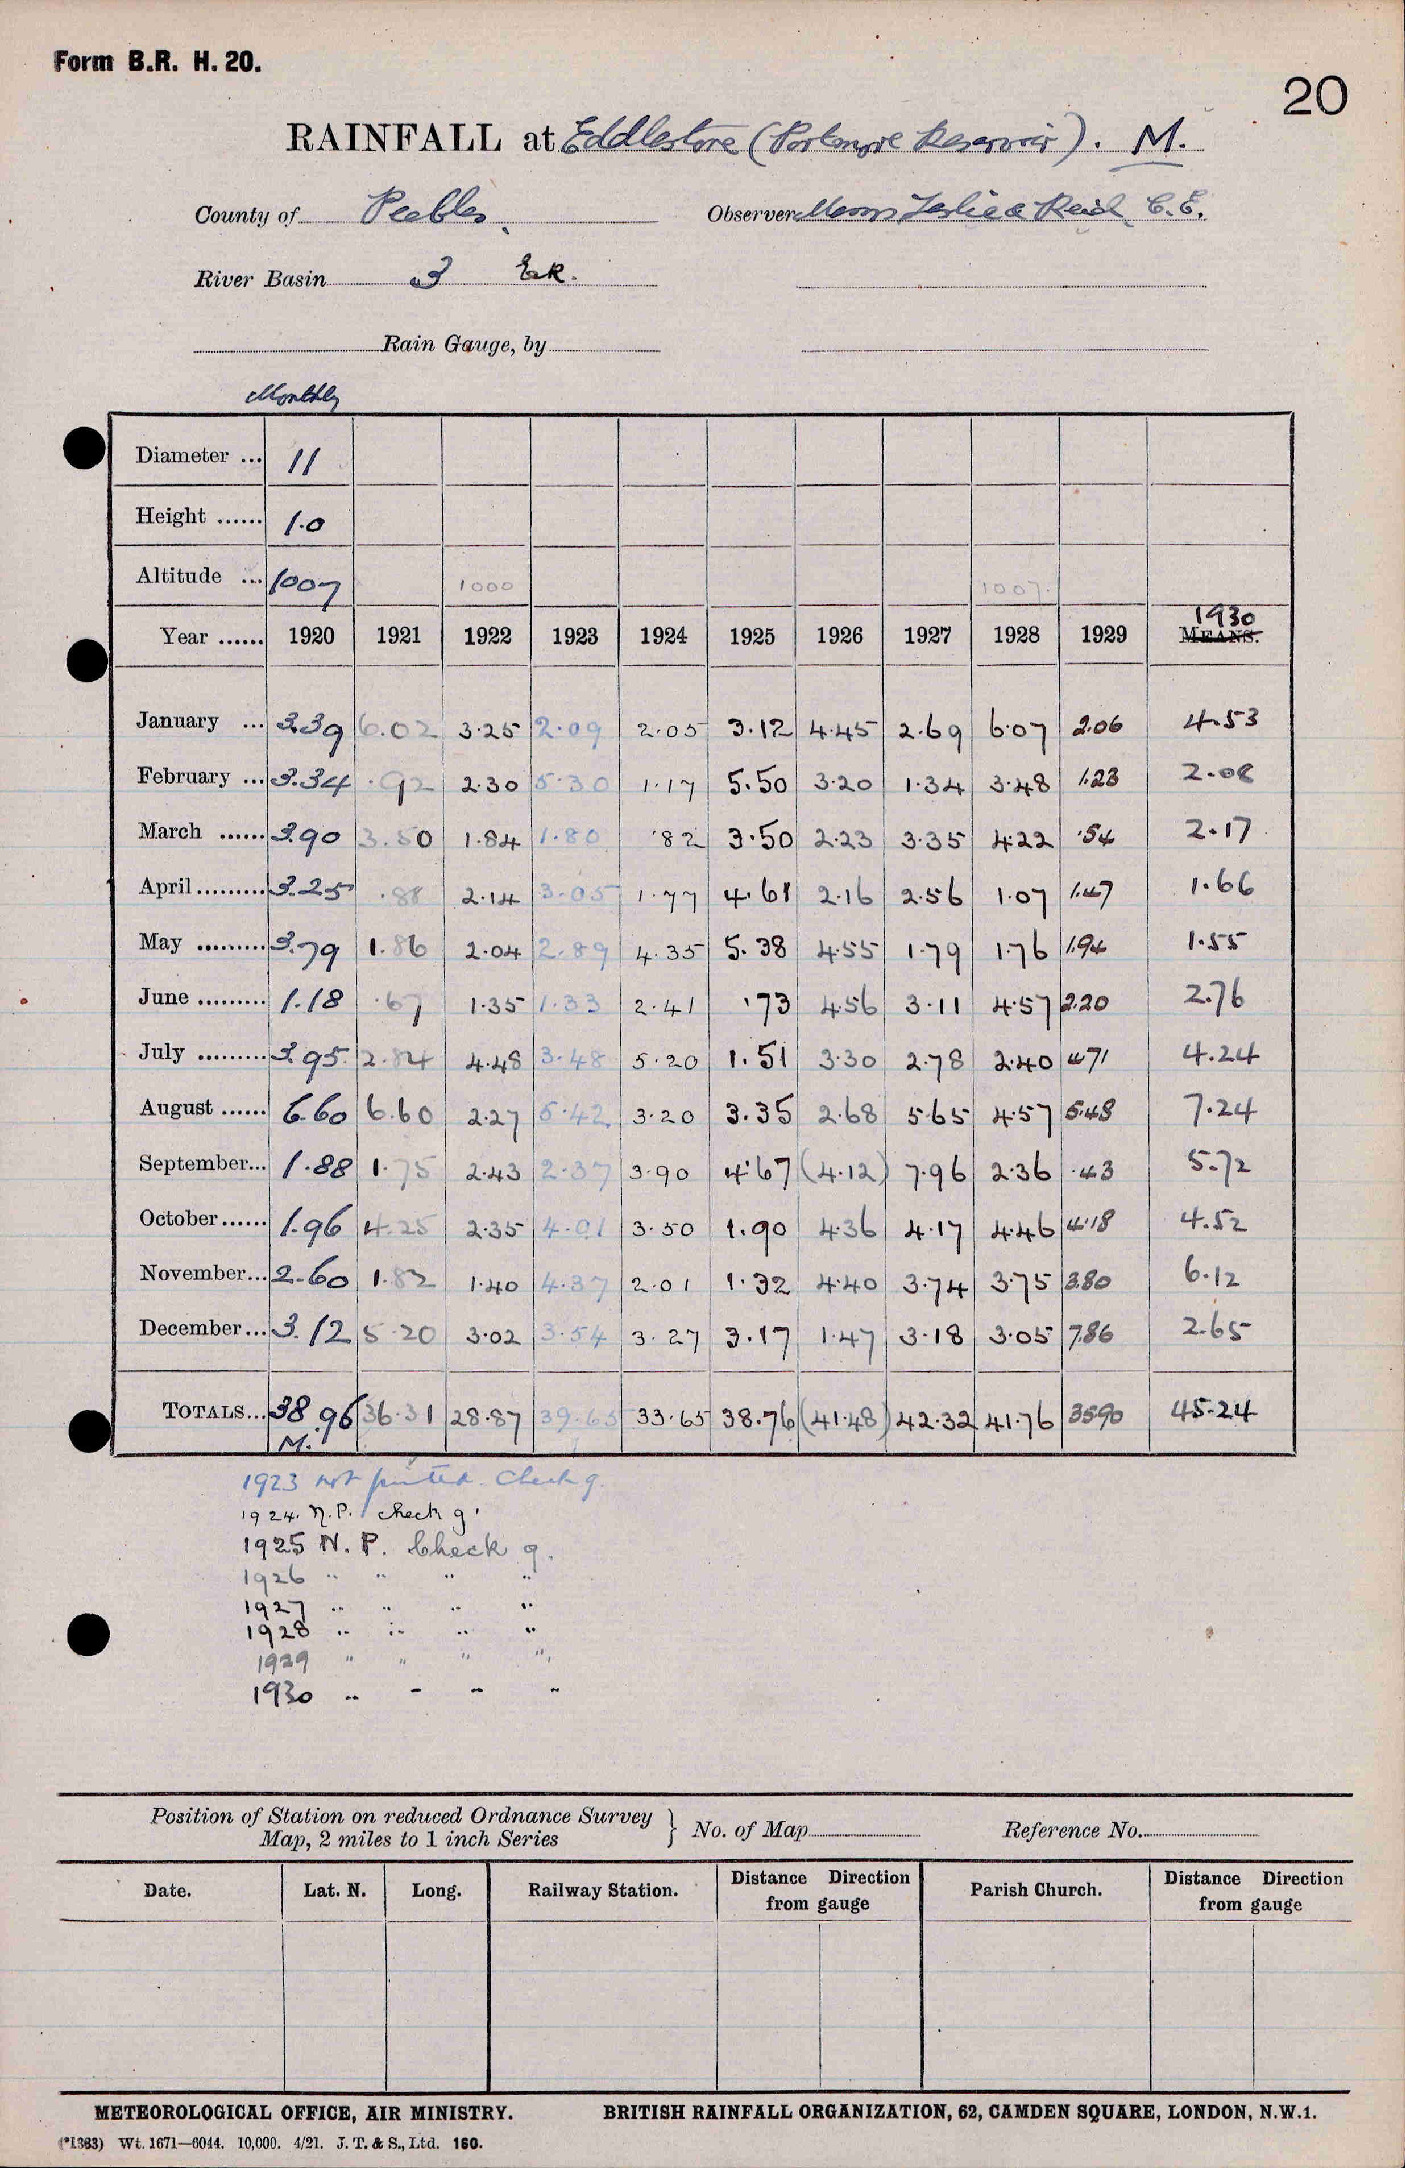 Form B.R. H. 20.
20
RAINFALL at Eddlestone (Portmore Reservoir). M.
County of Peebles. Observer Messrs Leslie & Reid, C.E.
River Basin 3 ER.
Rain Gauge, by
Monthly
Diameter ... 11
Height ...... 1.0
Altitude ... 1007 1000 1007.
1930
Year ...... 1920 1921 1922 1923 1924 1925 1926 1927 1928 1929 MEANS.
January ... 3.39 6.02 3.25 2.09 2.05 3.12 4.45 2.69 6.07 2.06 4.53
February ... 3.34 .92 2.30 5.30 1.17 5.50 3.20 1.34 3.48 1.23 2.08
March ...... 3.90 3.50 1.84 1.80 .82 3.50 2.23 3.35 4.22 .54 2.17
April......... 3.25 .88 2.14 3.05 1.77 4.61 2.16 2.56 1.07 1.47 1.66
May ......... 3.79 1.86 2.04 2.89 4.35 5.38 4.55 1.79 1.76 1.94 1.55
June ......... 1.18 .67 1.35 1.33 2.41 .73 4.56 3.11 4.57 2.20 2.76
July ......... 3.95 2.84 4.48 3.48 5.20 1.51 3.30 2.78 2.40 4.71 4.24
August ...... 6.60 6.60 2.27 5.42 3.20 3.35 2.68 5.65 4.57 5.48 7.24
September... 1.88 1.75 2.43 2.37 3.90 4.67 (4.12) 7.96 2.36 .43 5.72
October...... 1.96 4.25 2.35 4.01 3.50 1.90 4.36 4.17 4.46 4.18 4.52
November... 2.60 1.82 1.40 4.37 2.01 1.32 4.40 3.74 3.75 3.80 6.12
December... 3.12 5.20 3.02 3.54 3.27 3.17 1.47 3.18 3.05 7.86 2.65
TOTALS... 38.96 36.31 28.87 39.65 33.65 38.76 (41.48) 42.32 41.76 35.90 45.24
M.
1923 not printed. Check g.
1924. N.P. check g.
1925 N. P. Check g.
1926 " " " "
1927 " " " "
1928 " " " "
1929 " " " "
1930 " " " "
Position of Station on reduced Ordnance Survey
Map, 2 miles to 1 inch Series } No. of Map Reference No.
Date. Lat. N. Long. Railway Station. Distance Direction from gauge Parish Church. Distance Direction from gauge
METEOROLOGICAL OFFICE, AIR MINISTRY. BRITISH RAINFALL ORGANIZATION, 62, CAMDEN SQUARE, LONDON, N.W.1.
(*1383) Wt. 1671—6044. 10,000. 4/21. J. T. & S., Ltd. 160.